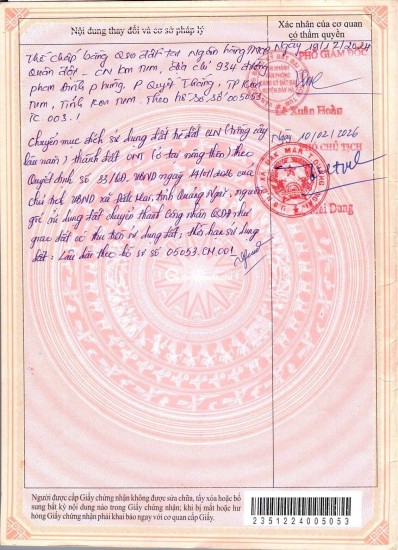 Nội dung thay đổi và cơ sở pháp lý
Xác nhận của cơ quan
có thẩm quyền
Thế chấp bằng QSD đất tại Ngân hàng TMCP
Quân đội - CN Kon Tum, Địa chỉ 934 đường
Phan Đình Phùng, P Quyết Thắng, TP Kon
Tum, Tỉnh Kon Tum. Theo hồ sơ số 005053.
TC 003.
Ngày 19/12/2024
PHÓ GIÁM ĐỐC
Lê Xuân Hoàn
Chuyển mục đích sử dụng đất từ đất CLN (trồng cây
lâu năm) thành đất ONT (ở tại nông thôn) theo
Quyết định số 33/QĐ. UBND ngày 14/01/2026 của
chủ tịch UBND xã Đăk Mar, tỉnh Quảng Ngãi, nguồn
gốc sử dụng đất chuyển thành công nhận QSDĐ như
giao đất có thu tiền sử dụng đất; thời hạn sử dụng
đất: Lâu dài theo hồ sơ số 05053.CM.001
Ngày 10/02/2026
PHÓ CHỦ TỊCH
Dung
Người được cấp Giấy chứng nhận không được sửa chữa, tẩy xóa hoặc bổ
sung bất kỳ nội dung nào trong Giấy chứng nhận; khi bị mất hoặc hư
hỏng Giấy chứng nhận phải khai báo ngay với cơ quan cấp Giấy.
2351224005053